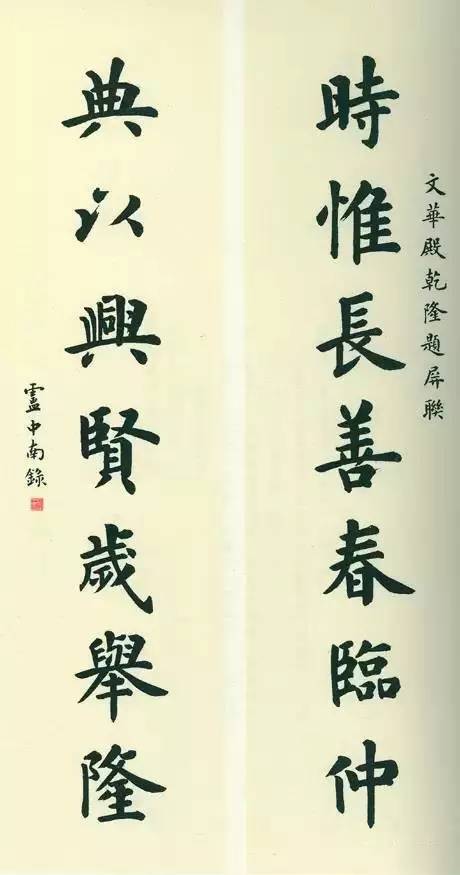 文華殿乾隆題屏聯
時惟長善春臨仲
典以興賢歲舉隆
盧中南錄